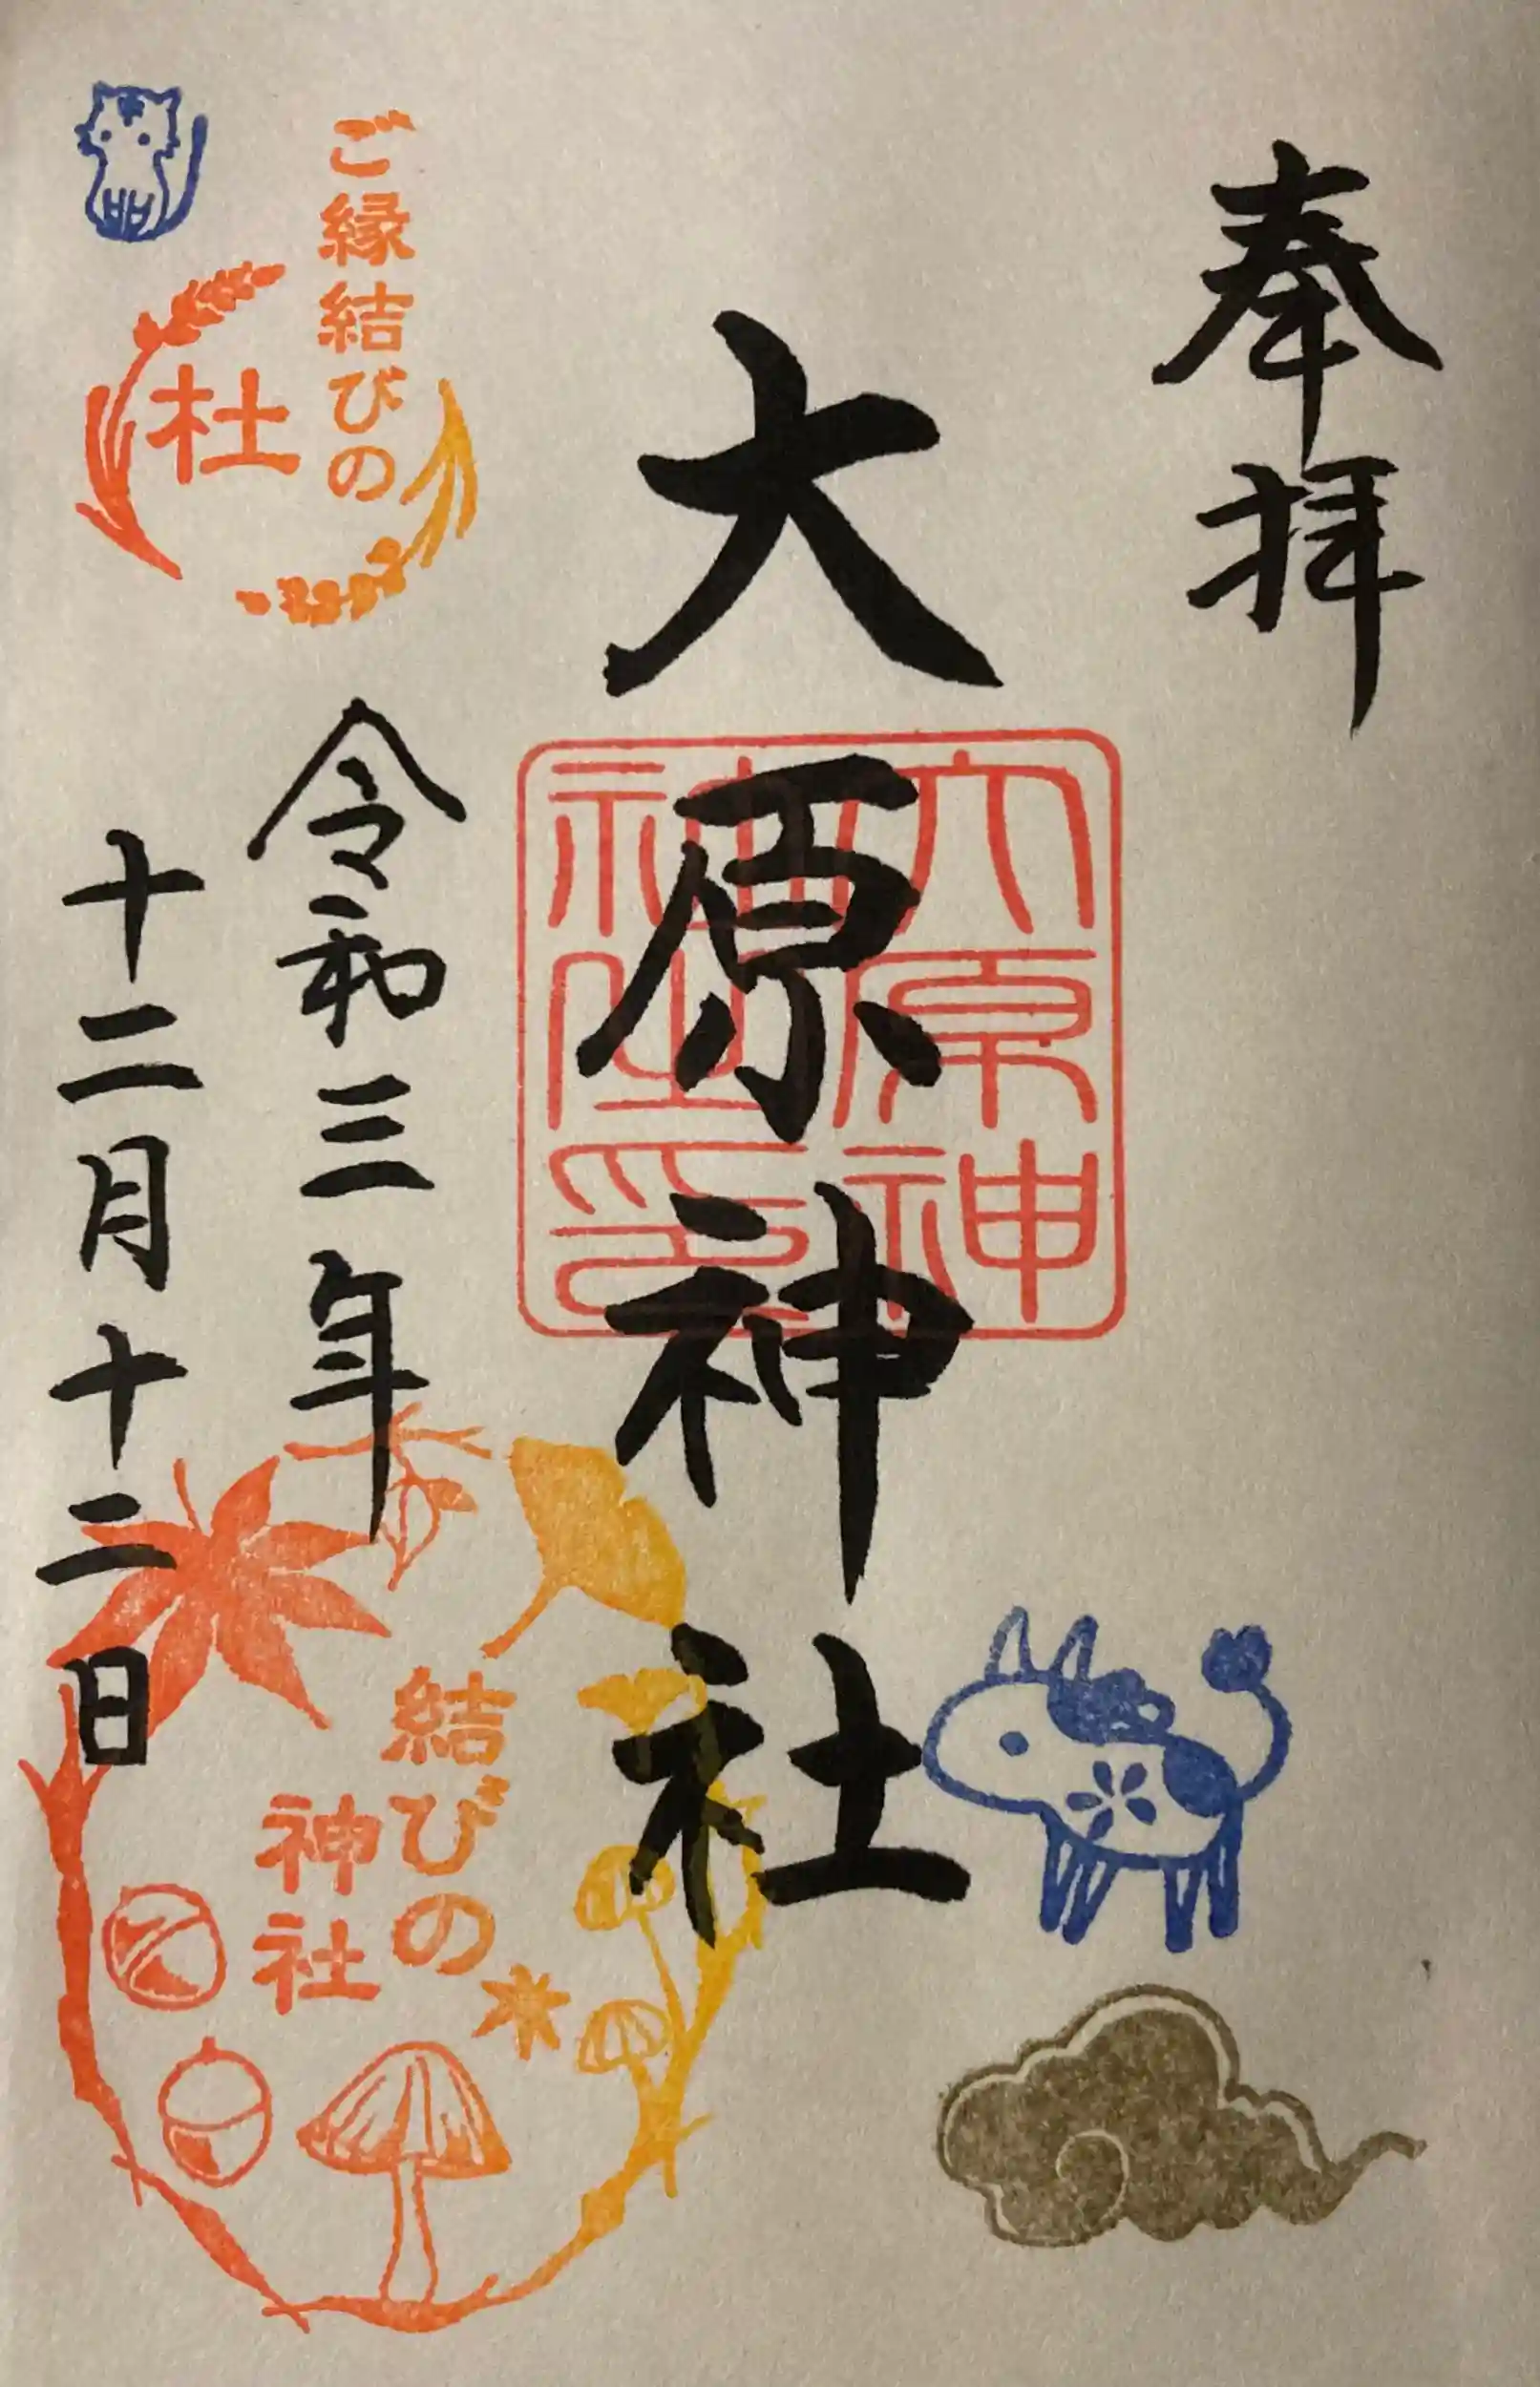 奉拝
大原神社
大原神
神社印
ご縁結びの
杜
令和三年
十二月十二日
結びの
神社